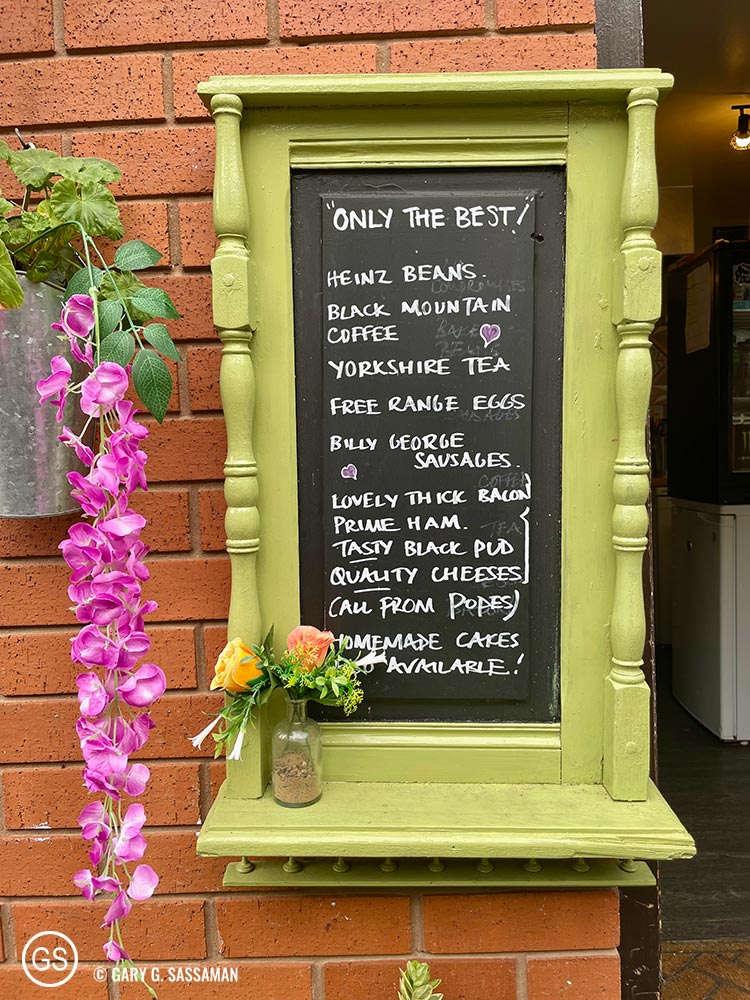 "ONLY THE BEST!
HEINZ BEANS.
BLACK MOUNTAIN
COFFEE
YORKSHIRE TEA
FREE RANGE EGGS
BILLY GEORGE
SAUSAGES.
LOVELY THICK BACON
PRIME HAM.
TASTY BLACK PUD
QUALITY CHEESES
(ALL FROM PODES)
HOMEMADE CAKES
AVAILABLE!
GS © GARY G. SASSAMAN